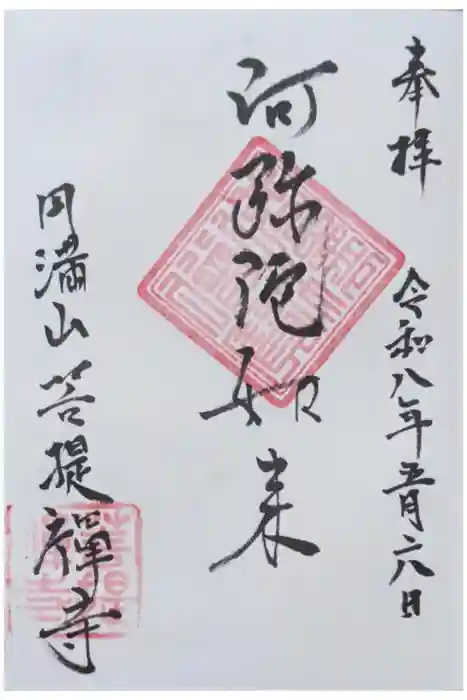 奉拝
令和八年五月六日
阿弥陀如来
円満山菩提禅寺